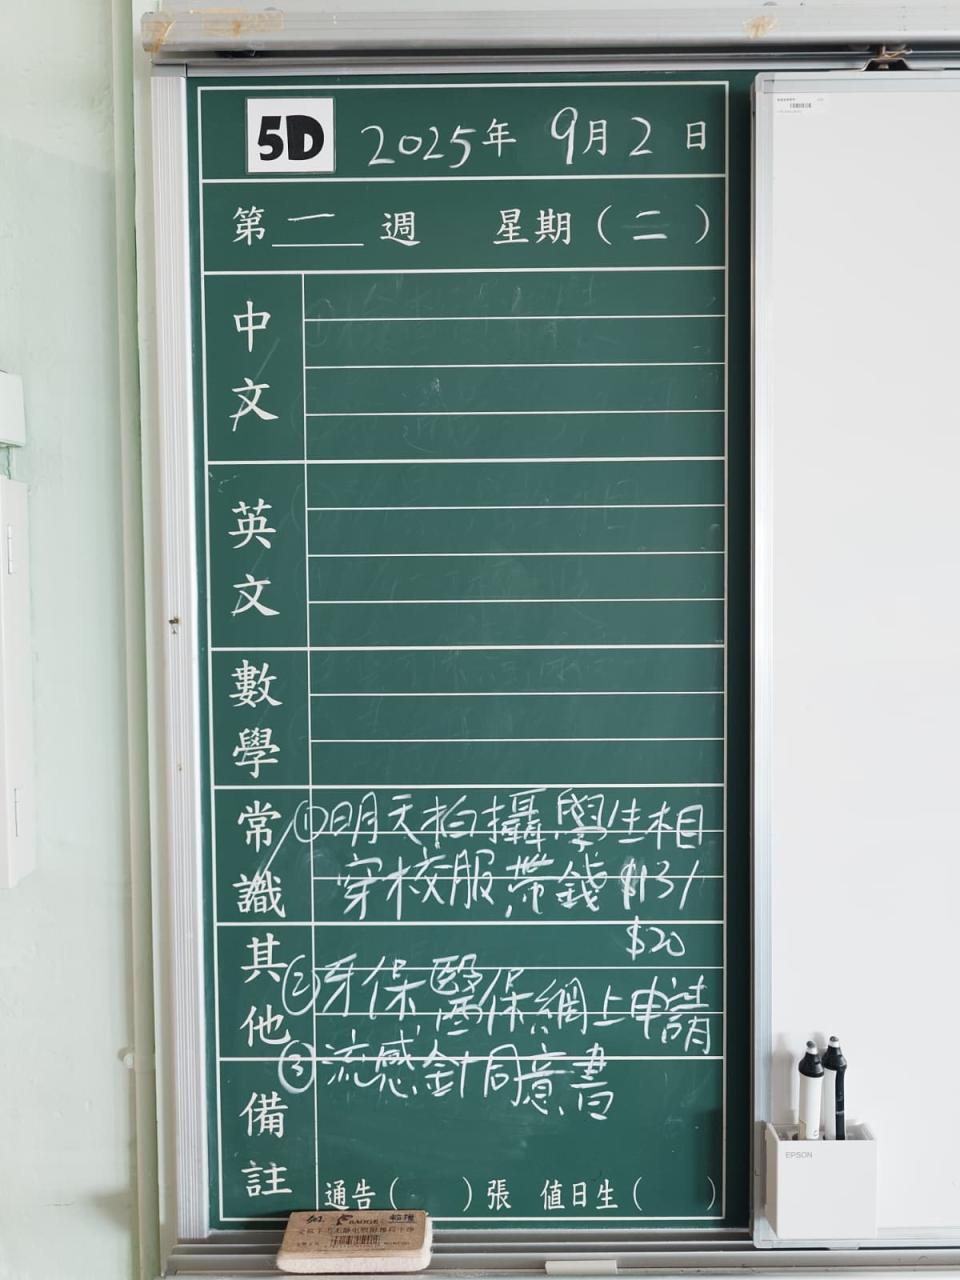 5D 2025年 9月2日
第一週 星期(二)
中文
英文
數學
常識
①明天拍攝學生相
穿校服帶錢$131
$20
其他
②牙保醫保網上申請
③流感針同意書
備註
通告( )張 值日生( )
BADGE
EPSON